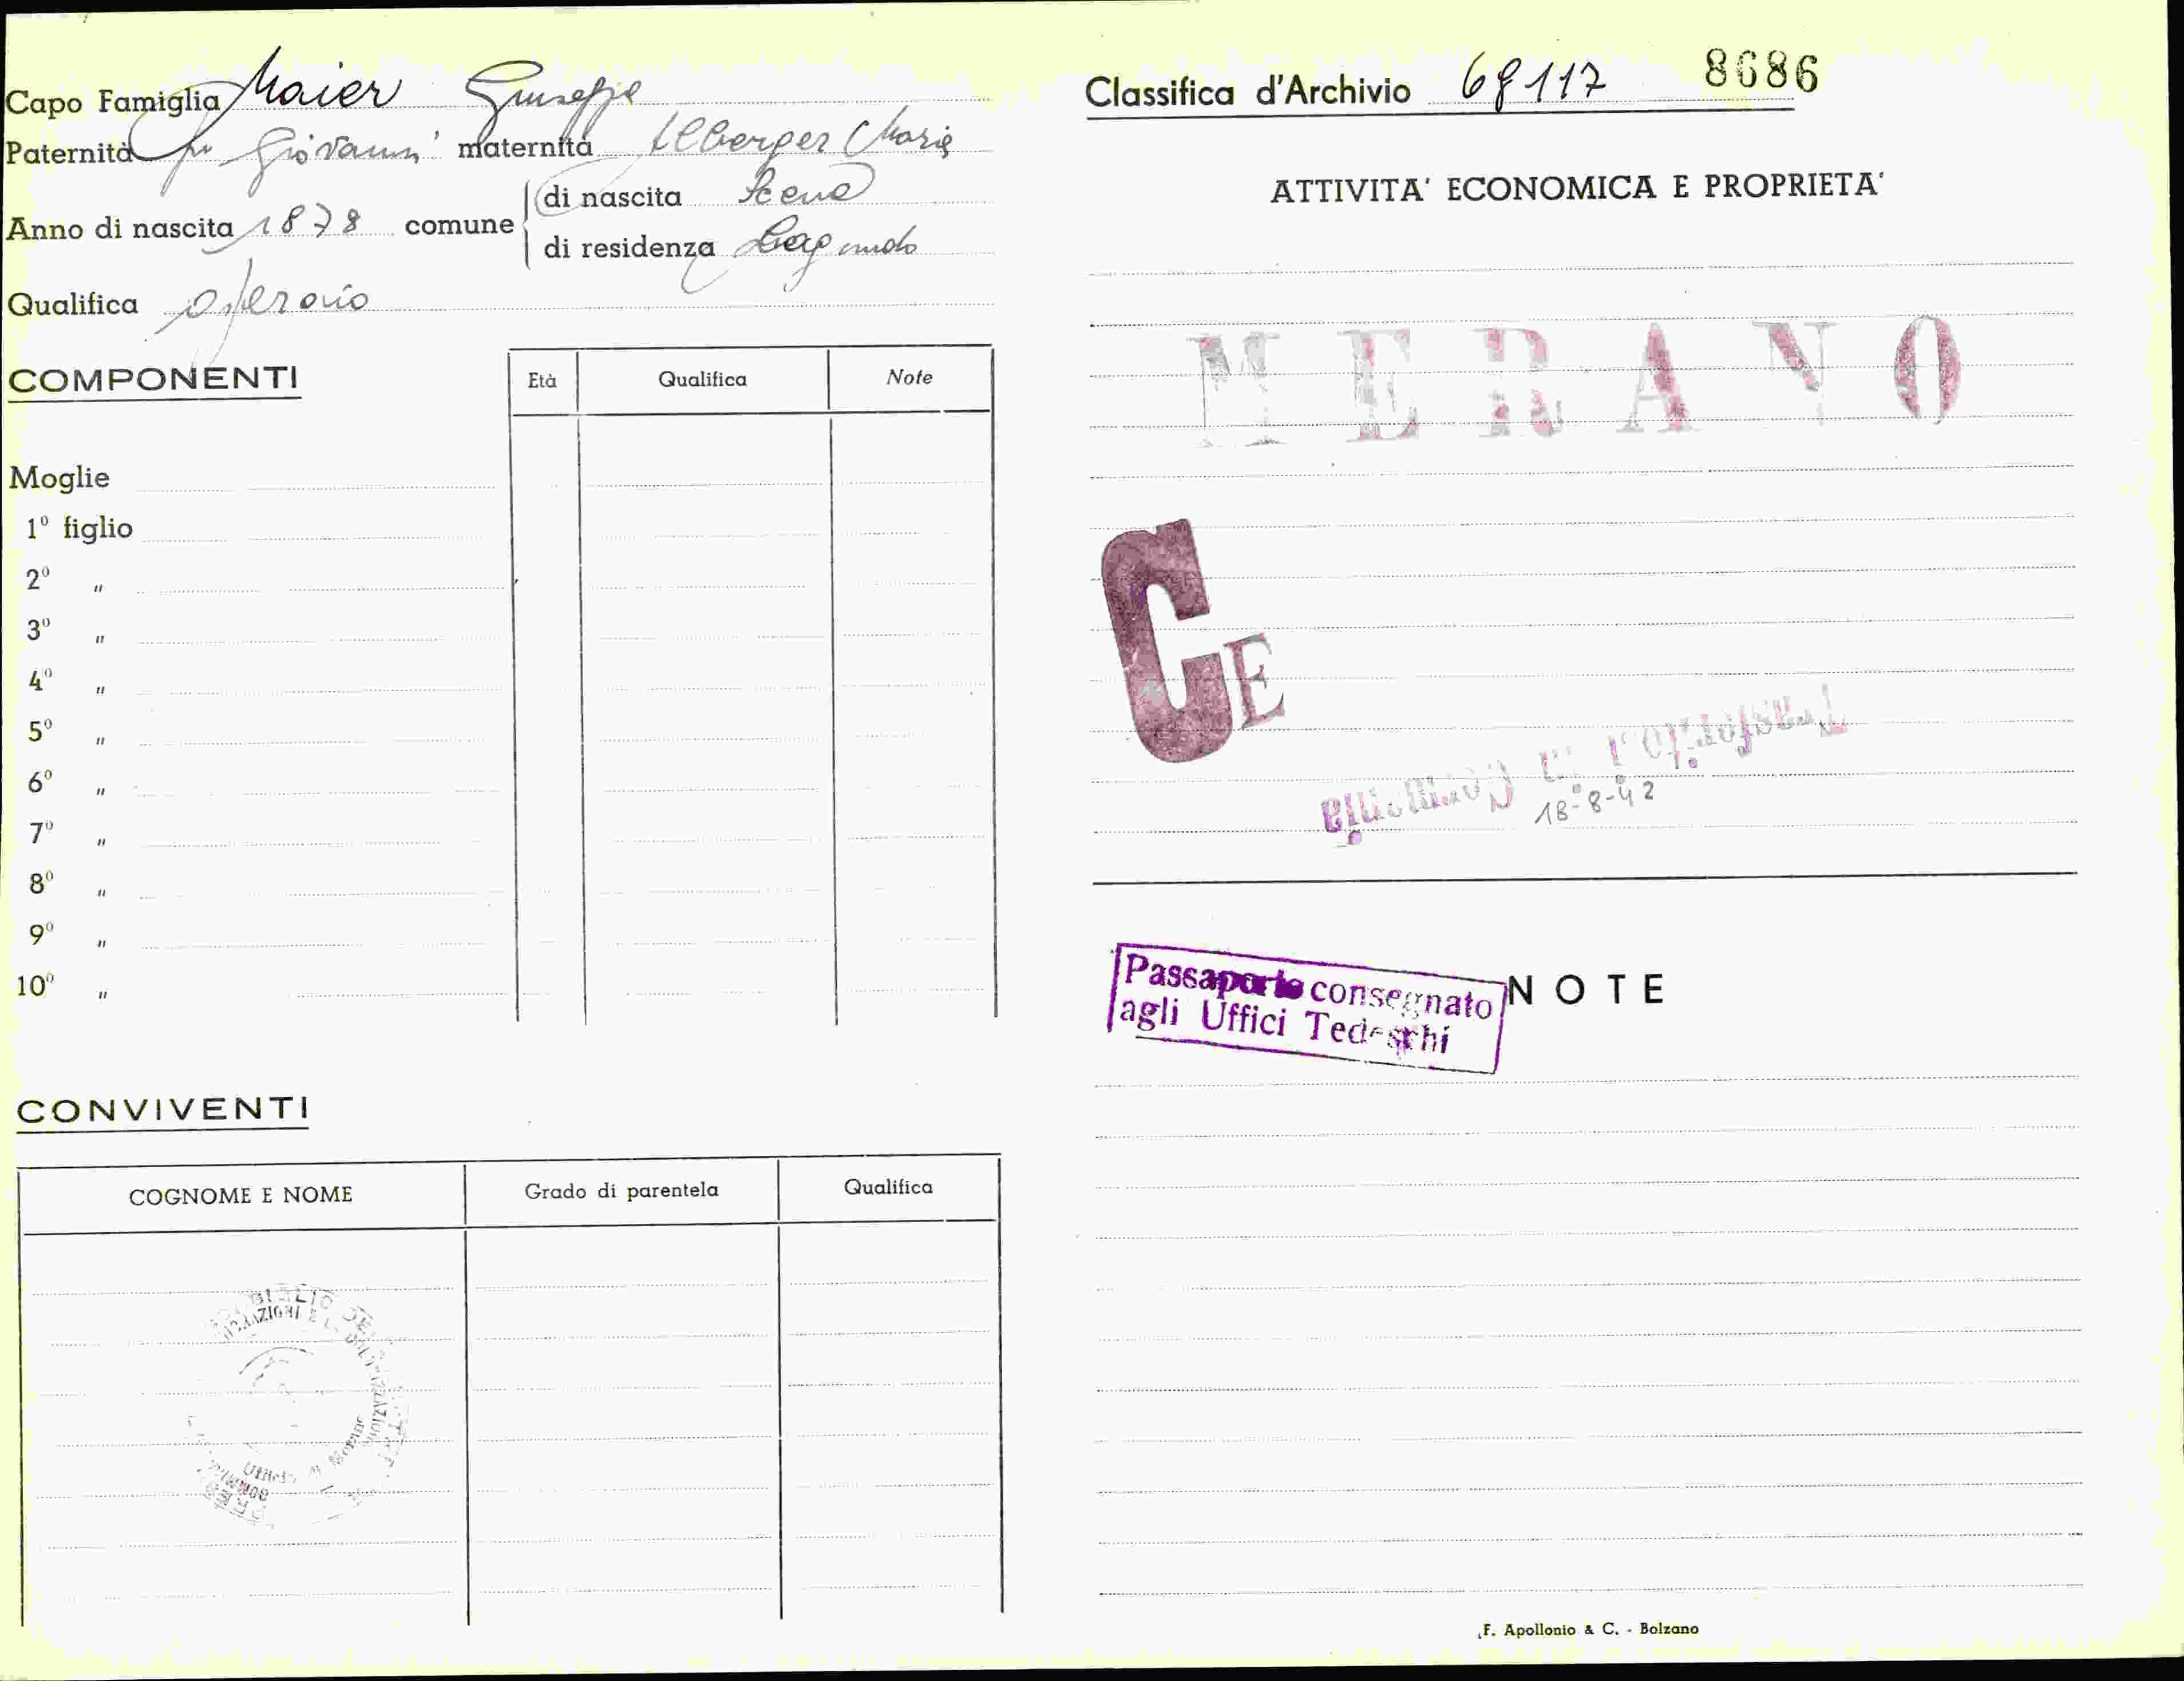 Capo Famiglia Maier Giuseppe
Paternità fu Giovanni maternità Maria
Anno di nascita 1878 comune
di nascita Scena
di residenza Lagundo
Qualifica operaio
COMPONENTI
Età Qualifica Note
Moglie
1º figlio
2º "
3º "
4º "
5º "
6º "
7º "
8º "
9º "
10º "
CONVIVENTI
COGNOME E NOME Grado di parentela Qualifica
Classifica d'Archivio 68117 8686
ATTIVITA' ECONOMICA E PROPRIETA'
MERANO
CE
Trasferitosi in Germania
18-8-42
Passaporto consegnato
agli Uffici Tedeschi
NOTE
F. Apollonio & C. - Bolzano